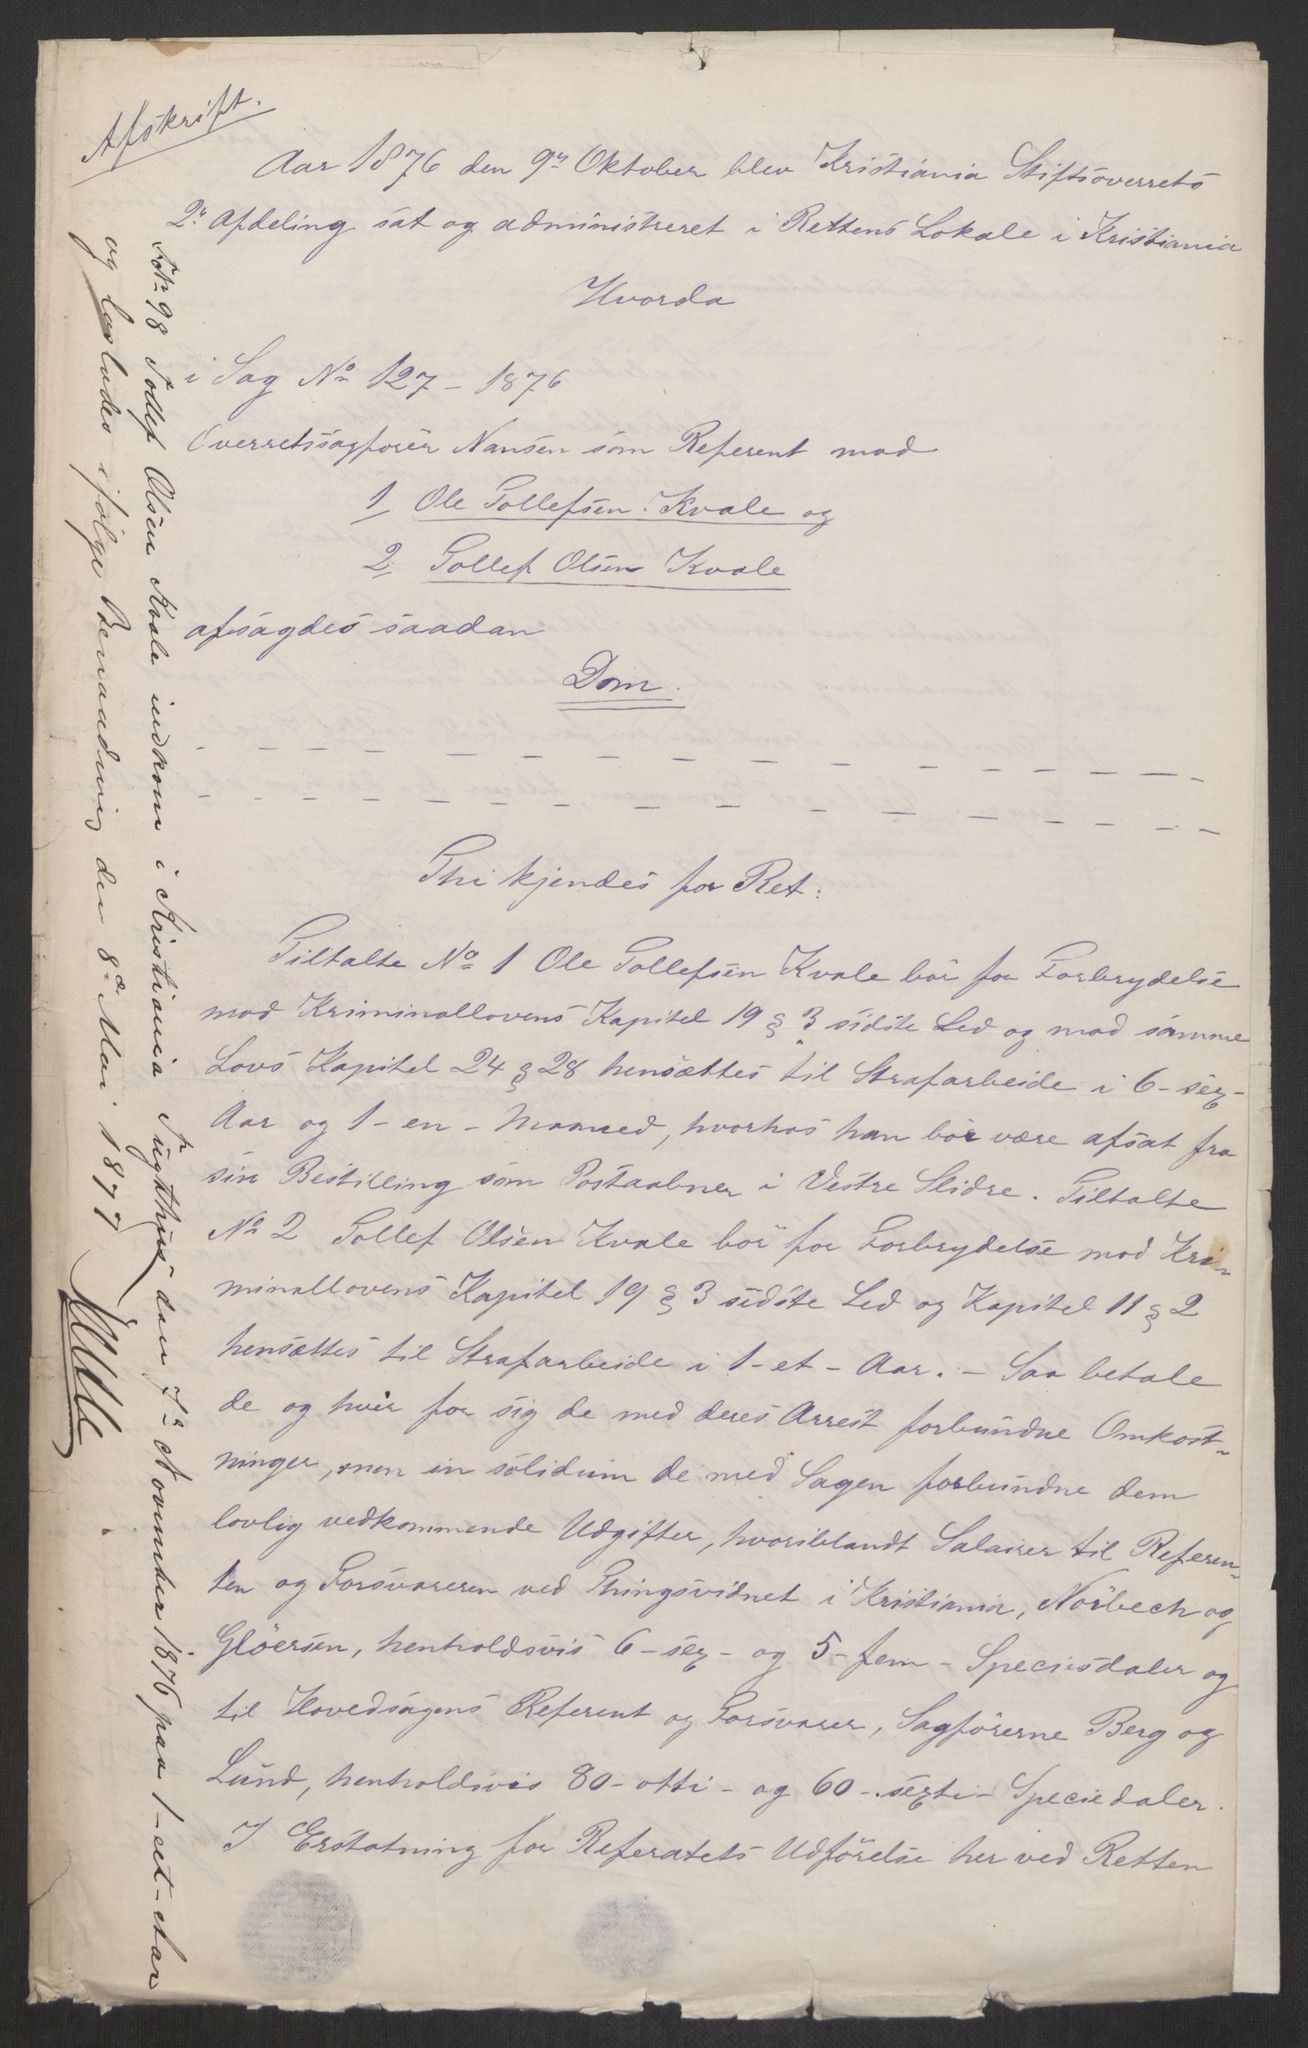 Afskrift.
Aar 1876 den 9de Oktober blev Kristiania Stiftsoverrets
2n Afdeling sat og administreret i Rettens Lokale i Kristiania
Hvorda
i Sag No 127 - 1876
Overretssagförer Nansen som Referent mod
1 Ole Tollefsen Kvale og
2. Tollef Olsen Kvale
afsagdes saadan
Dom.
Thi kjendes for Ret:
Tiltalte No 1 Ole Tollefsen Kvale bör for Forbrydelse
mod Kriminallovens Kapitel 19 § 3 sidste Led og mod samme
Lovs Kapitel 24 § 28 hensættes til Strafarbeide i 6 - sex -
Aar og 1 - en - Maaned, hvorhos han bör være afsat fra
sin Bestilling som Postaabner i Vestre Slidre. Tiltalte
No 2 Tollef Olsen Kvale bör for Forbrydelse mod Kri-
minallovens Kapitel 19 § 3 sidste Led og Kapitel 11 § 2
hensættes til Strafarbeide i 1 - et - Aar. - Saa betale
de og hver for sig de med deres Arrest forbundne Omkost-
ninger, men in solidum de med Sagen forbundne dem
lovlig vedkommende Udgifter, hvoriblandt Salairer til Referen-
ten og Forsvareren ved Thingsvidnet i Kristiania, Nörbech og
Glöersen, henholdsvis 6 - sex - og 5 - fem - Speciesdaler og
til Hovedsagens Referent og Forsvarer, Sagförerne Berg og
Lund, henholdsvis 80 - otti - og 60 - sexti - Speciedaler.
I Erstatning for Referatets Udförelse her ved Retten
No 98 Tollef Olsen Kvale indkom i Kristiania Tugthus den 7de November 1876 paa 1 - et - Aar
og løslades ifølge Benaadning den 8de Mai 1877